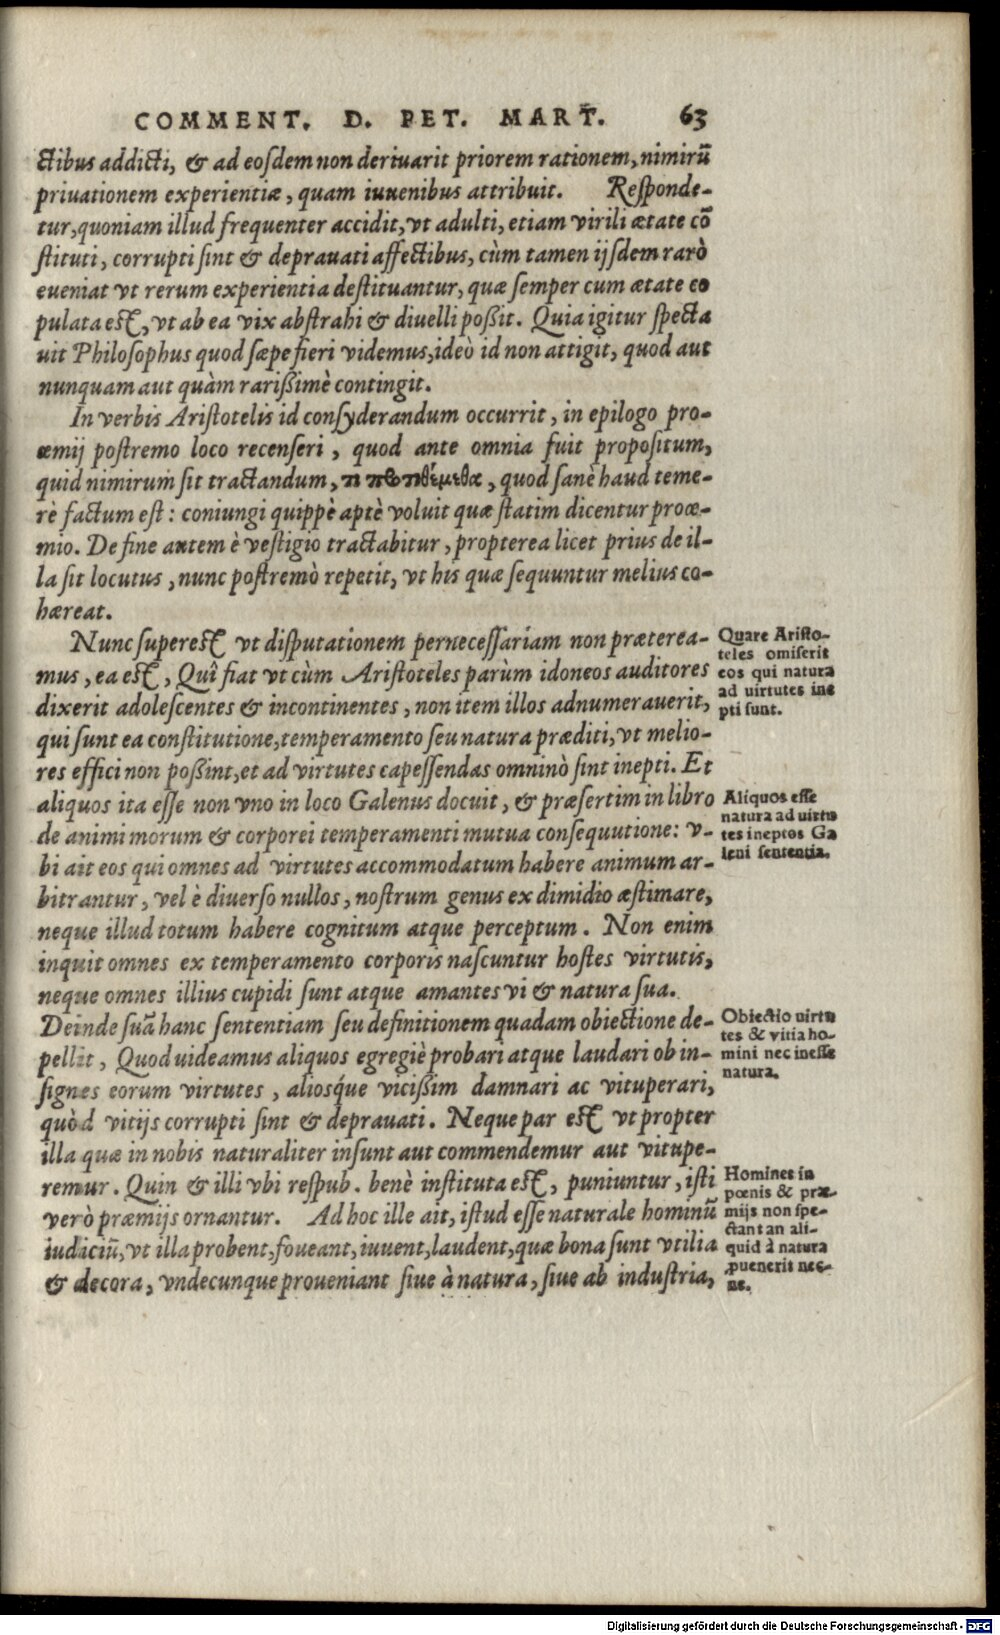 COMMENT. D. PET. MART. 63
ctibus addicti, & ad eosdem non deriuarit priorem rationem, nimirū
priuationem experientiæ, quam iuuenibus attribuit. Responde-
tur, quoniam illud frequenter accidit, vt adulti, etiam virili ætate cō
stituti, corrupti sint & deprauati affectibus, cùm tamen ijsdem rarò
eueniat vt rerum experientia destituantur, quæ semper cum ætate co
pulata est, vt ab ea vix abstrahi & diuelli poßit. Quia igitur specta
uit Philosophus quod sæpe fieri videmus, ideò id non attigit, quod aut
nunquam aut quàm rarißimè contingit.
In verbis Aristotelis id consyderandum occurrit, in epilogo pro-
œmij postremo loco recenseri, quod ante omnia fuit propositum,
quid nimirum sit tractandum, τί προτιθέμεθα, quod sanè haud teme-
rè factum est: coniungi quippè aptè voluit quæ statim dicentur proœ-
mio. De fine autem è vestigio tractabitur, propterea licet prius de il-
la sit locutus, nunc postremò repetit, vt his quæ sequuntur melius co-
hæreat.
Nunc superest vt disputationem pernecessariam non præterea-
mus, ea est, Quî fiat vt cùm Aristoteles parùm idoneos auditores
dixerit adolescentes & incontinentes, non item illos adnumerauerit,
qui sunt ea constitutione, temperamento seu natura præditi, vt melio-
res effici non poßint, et ad virtutes capessendas omninò sint inepti. Et
aliquos ita esse non vno in loco Galenus docuit, & præsertim in libro
de animi morum & corporei temperamenti mutua consequutione: v-
bi ait eos qui omnes ad virtutes accommodatum habere animum ar-
bitrantur, vel è diuerso nullos, nostrum genus ex dimidio æstimare,
neque illud totum habere cognitum atque perceptum. Non enim
inquit omnes ex temperamento corporis nascuntur hostes virtutis,
neque omnes illius cupidi sunt atque amantes vi & natura sua.
Deinde suā hanc sententiam seu definitionem quadam obiectione de-
pellit, Quod uideamus aliquos egregiè probari atque laudari ob in-
signes eorum virtutes, aliosq́ue vicißim damnari ac vituperari,
quòd vitijs corrupti sint & deprauati. Neque par est vt propter
illa quæ in nobis naturaliter insunt aut commendemur aut vitupe-
remur. Quin & illi vbi respub. benè instituta est, puniuntur, isti
verò præmijs ornantur. Ad hoc ille ait, istud esse naturale hominū
iudiciū, vt illa probent, foueant, iuuent, laudent, quæ bona sunt vtilia
& decora, vndecunque proueniant siue à natura, siue ab industria,
Quare Aristo-
teles omiserit
eos qui natura
ad uirtutes ine
pti sunt.
Aliquos esse
natura ad uirtu
tes ineptos Ga
leni sententia.
Obiectio uirtu
tes & vitia ho-
mini nec inesse
natura.
Homines in
pœnis & præ-
mijs non spe-
ctant an ali-
quid à natura
ꝓuenerit nec-
ne.
Digitalisierung gefördert durch die Deutsche Forschungsgemeinschaft - DFG